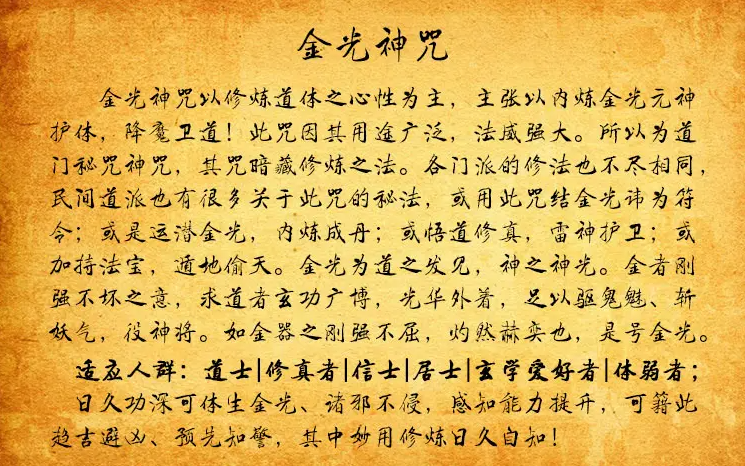 金光神咒
金光神咒以修炼道体之心性为主，主张以内炼金光元神
护体，降魔卫道！此咒因其用途广泛，法威强大。所以为道
门秘咒神咒，其咒暗藏修炼之法。各门派的修法也不尽相同，
民间道派也有很多关于此咒的秘法，或用此咒结金光讳为符
令；或是运潜金光，内炼成丹；或悟道修真，雷神护卫；或
加持法宝，遁地偷天。金光为道之发见，神之神光。金者刚
强不坏之意，求道者玄功广博，光华外著，足以驱鬼魅、斩
妖气，役神将。如金器之刚强不屈，灼然赫奕也，是号金光。
适应人群：道士|修真者|信士|居士|玄学爱好者|体弱者；
日久功深可体生金光、诸邪不侵，感知能力提升，可籍此
趋吉避凶、预先知警，其中妙用修炼日久自知！